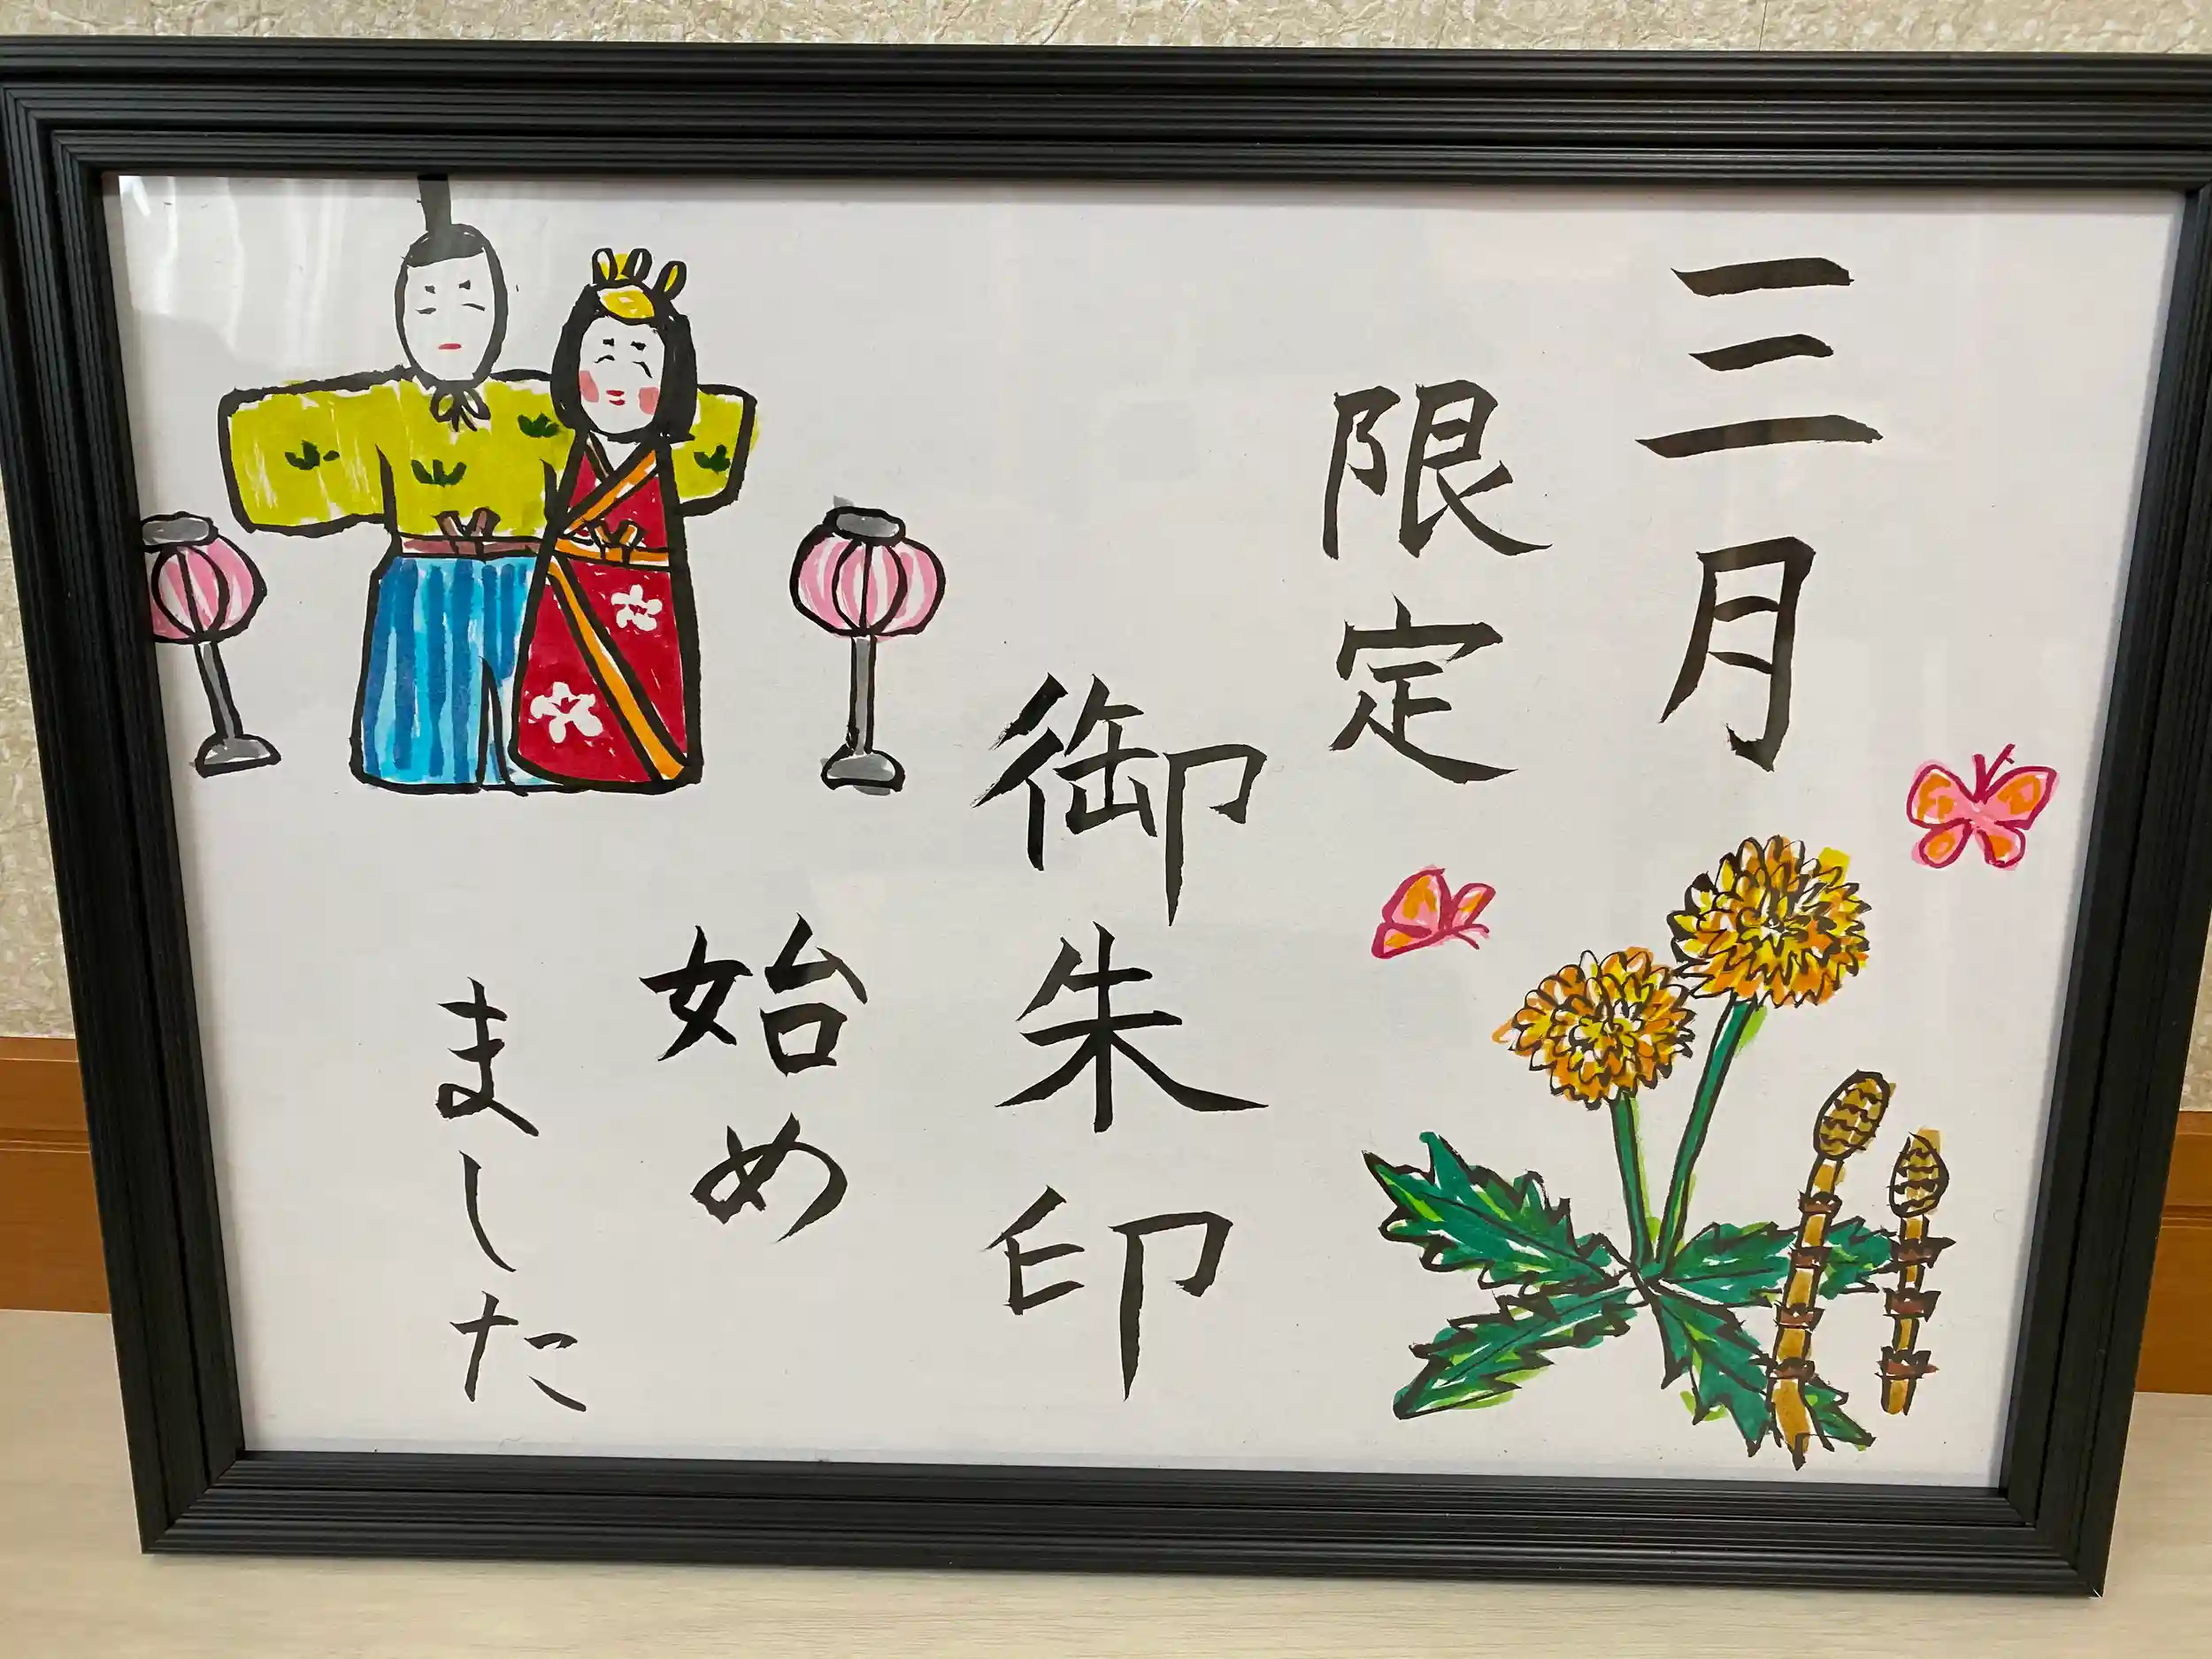 三月
限定
御朱印
始め
ました